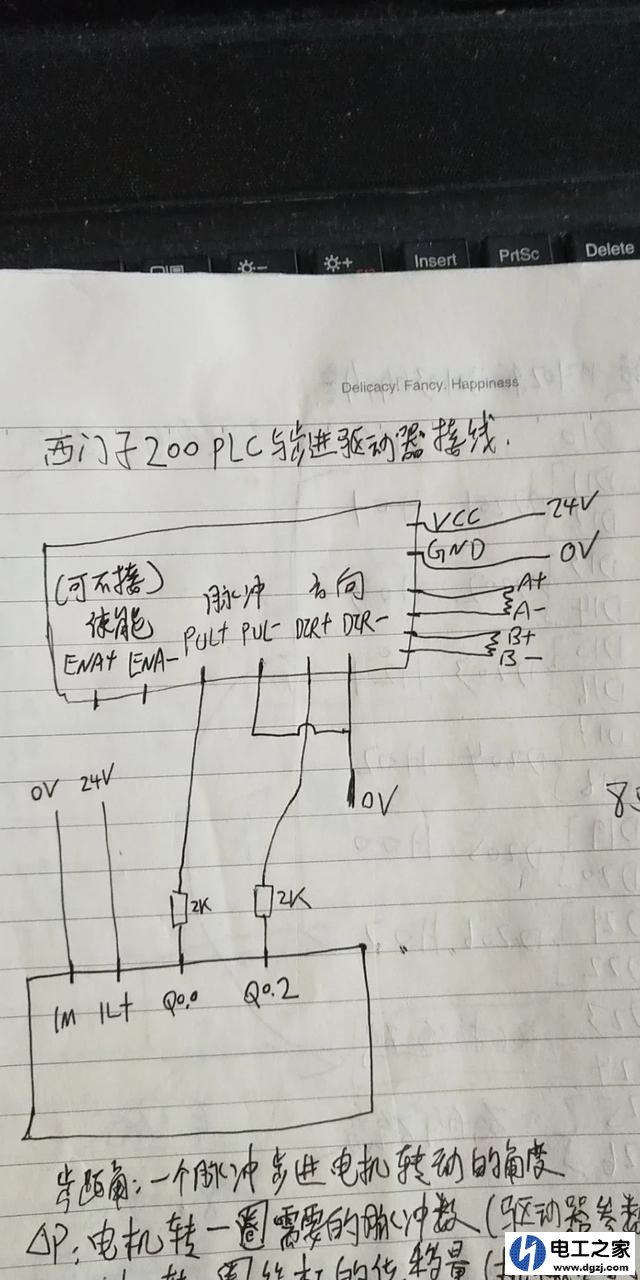 Insert PrtSc Delete
Delicacy. Fancy. Happiness
西门子200PLC与步进驱动器接线.
VCC 24V
GND 0V
(可不接) 脉冲 方向 A+
使能 A-
ENA+ ENA- PUL+ PUL- DIR+ DIR- B+
B-
0V 24V 0V
2K 2K
1M 1L+ Q0.0 Q0.2
步距角:一个脉冲步进电机转动的角度
ΔP:电机转一圈需要的脉冲数(驱动器参数
电工之家
www.dgzj.com